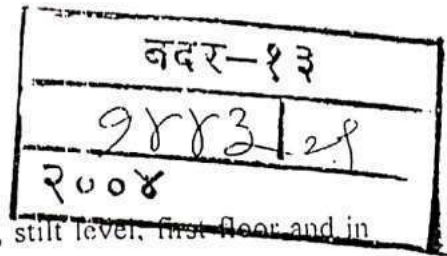 बदर-१३
१४४३
२००४
, stilt level, first floor and in